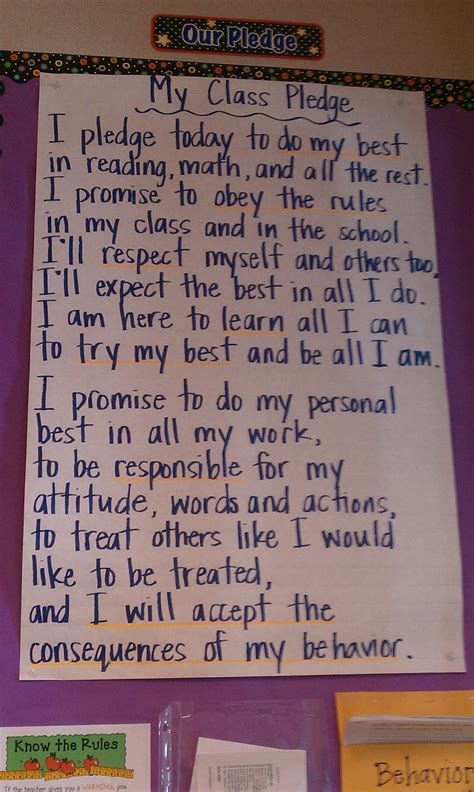 Our Pledge
My Class Pledge
I pledge today to do my best
in reading, math, and all the rest.
I promise to obey the rules
in my class and in the school.
I'll respect myself and others too,
I'll expect the best in all I do.
I am here to learn all I can
to try my best and be all I am.
I promise to do my personal
best in all my work,
to be responsible for my
attitude, words and actions,
to treat others like I would
like to be treated,
and I will accept the
consequences of my behavior.
Know the Rules
If the teacher gives you a WARNING, you
Behavior